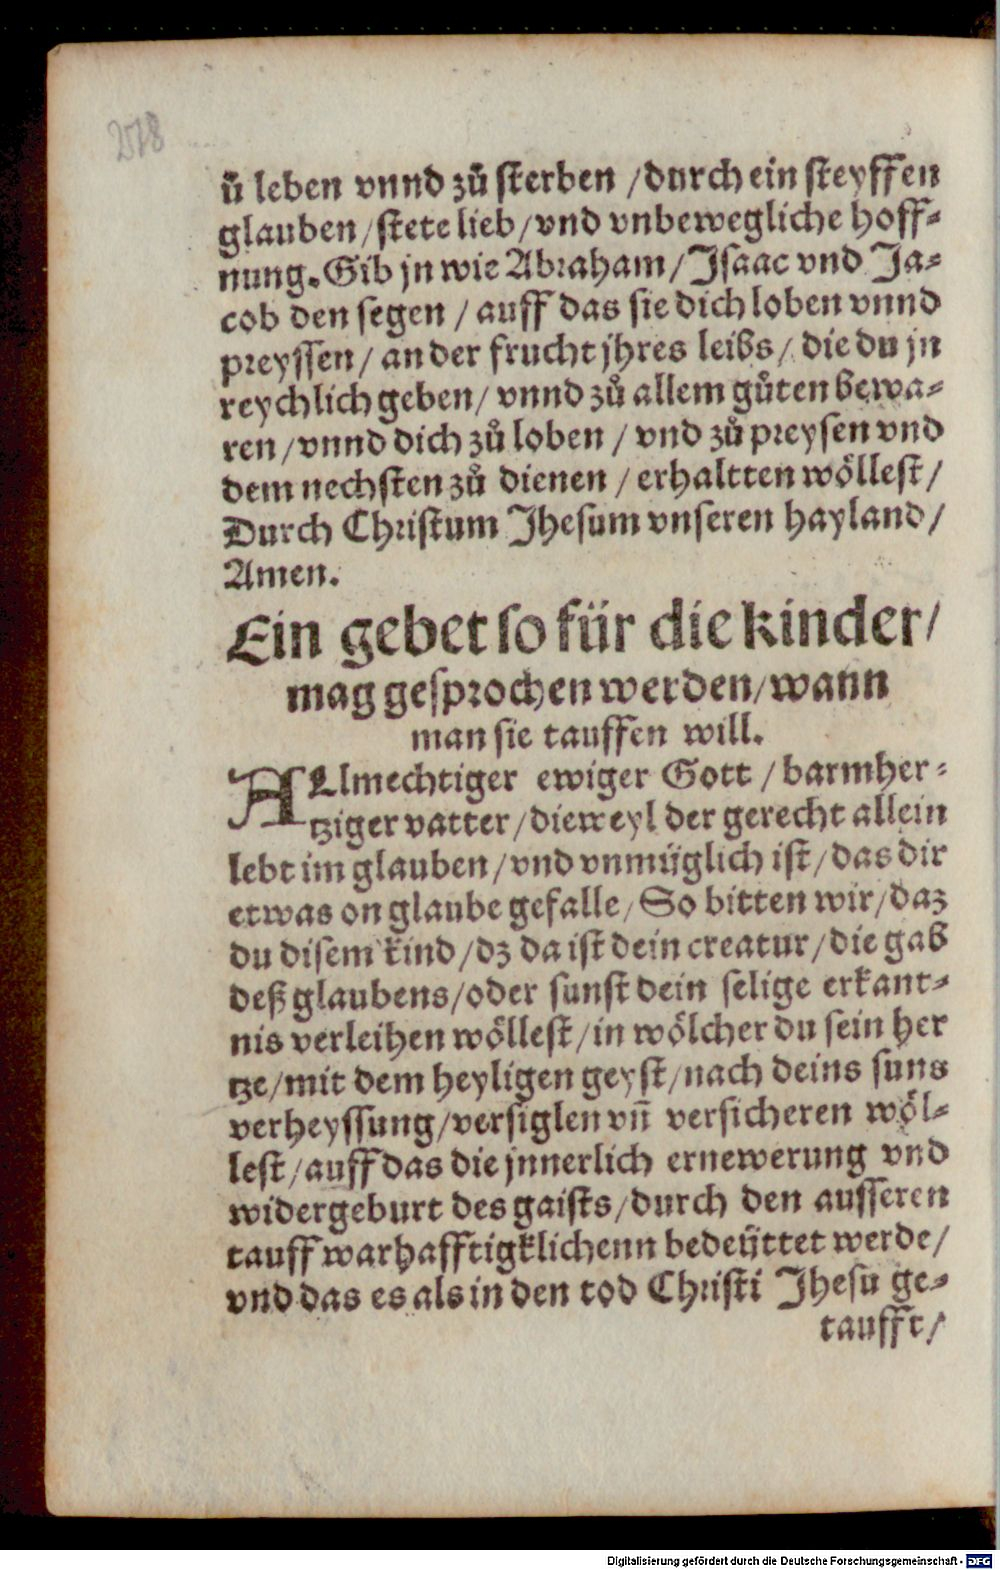 218
uͦ leben vnnd zuͦ sterben / durch ein steyffen
glauben / stete lieb / vnd vnbewegliche hoff⸗
nung. Gib jn wie Abraham / Isaac vnd Ja⸗
cob den segen / auff das sie dich loben vnnd
preyssen / an der frucht jhres leibs / die du jn
reychlich geben / vnnd zuͦ allem guͦten bewa⸗
ren / vnnd dich zuͦ loben / vnd zuͦ preysen vnd
dem nechsten zuͦ dienen / erhaltten woͤllest /
Durch Christum Jhesum vnseren hayland /
Amen.
Ein gebet so für die kinder /
mag gesprochen werden / wann
man sie tauffen will.
ALlmechtiger ewiger Gott / barmher⸗
tziger vatter / dieweyl der gerecht allein
lebt im glauben / vnd vnmüglich ist / das dir
etwas on glaube gefalle / So bitten wir / daz
du disem kind / dz da ist dein creatur / die gab
deß glaubens / oder sunst dein selige erkant⸗
nis verleihen woͤllest / in woͤlcher du sein her
tze / mit dem heyligen geyst / nach deins suns
verheyssung / versiglen vñ versicheren woͤl⸗
lest / auff das die jnnerlich ernewerung vnd
widergeburt des gaists / durch den ausseren
tauff warhafftigklichenn bedeüttet werde /
vnd das es als in den tod Christi Jhesu ge⸗
taufft /
Digitalisierung gefördert durch die Deutsche Forschungsgemeinschaft - DFG